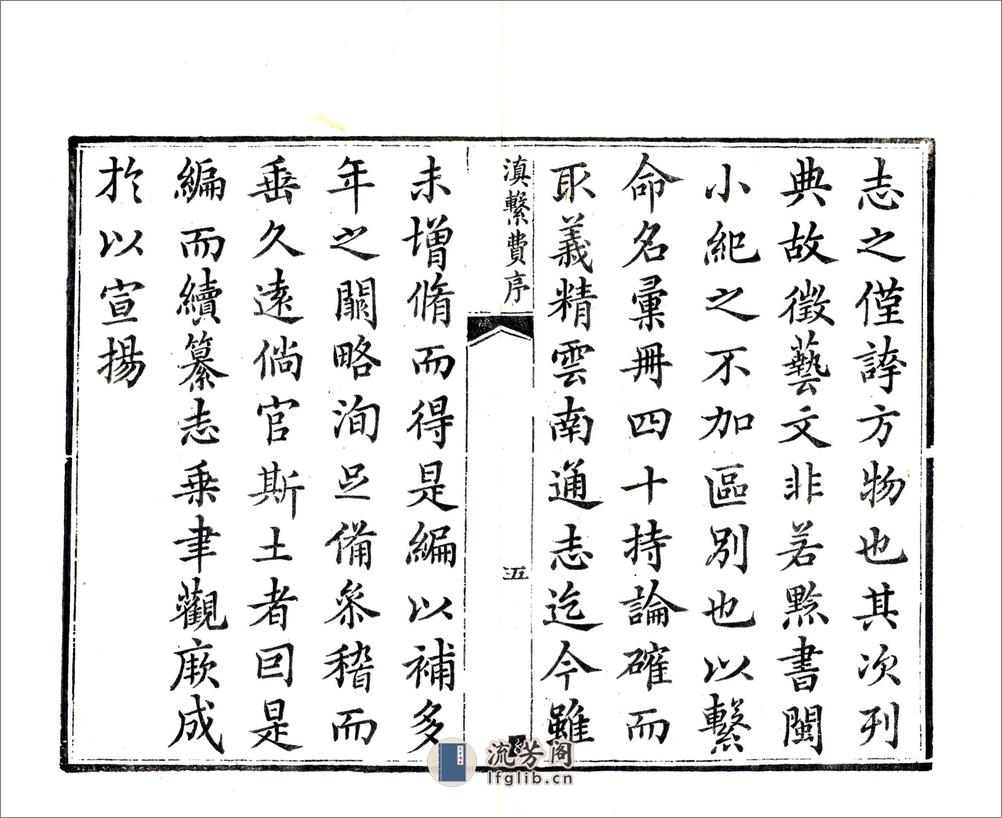 志之僅誇方物也其次列
典故徵藝文非若黔書閩
小紀之不加區別也以繫
命名彙冊四十持論確而
取義精雲南通志迄今雖
滇繫費序
五
未增脩而得是編以補多
年之闕略洵足備叅稽而
垂久遠倘官斯土者因是
編而續纂志乘聿觀厥成
於以宣揚
流芳阁
lfglib.cn